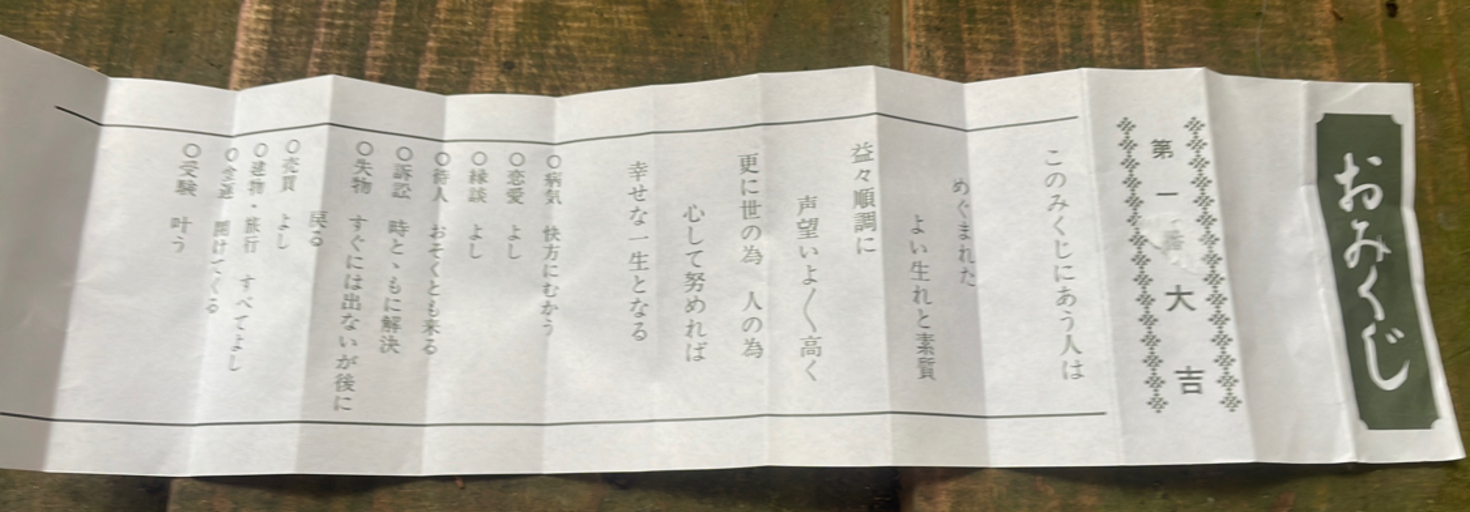 おみくじ
第一番 大吉
このみくじにあう人は
めぐまれた
よい生れと素質
益々順調に
声望いよ〳〵高く
更に世の為 人の為
心して努めれば
幸せな一生となる
○病気 快方にむかう
○恋愛 よし
○縁談 よし
○待人 おそくとも来る
○訴訟 時とゝもに解決
○失物 すぐには出ないが後に
戻る
○売買 よし
○建物・旅行 すべてよし
○金運 開けてくる
○受験 叶う